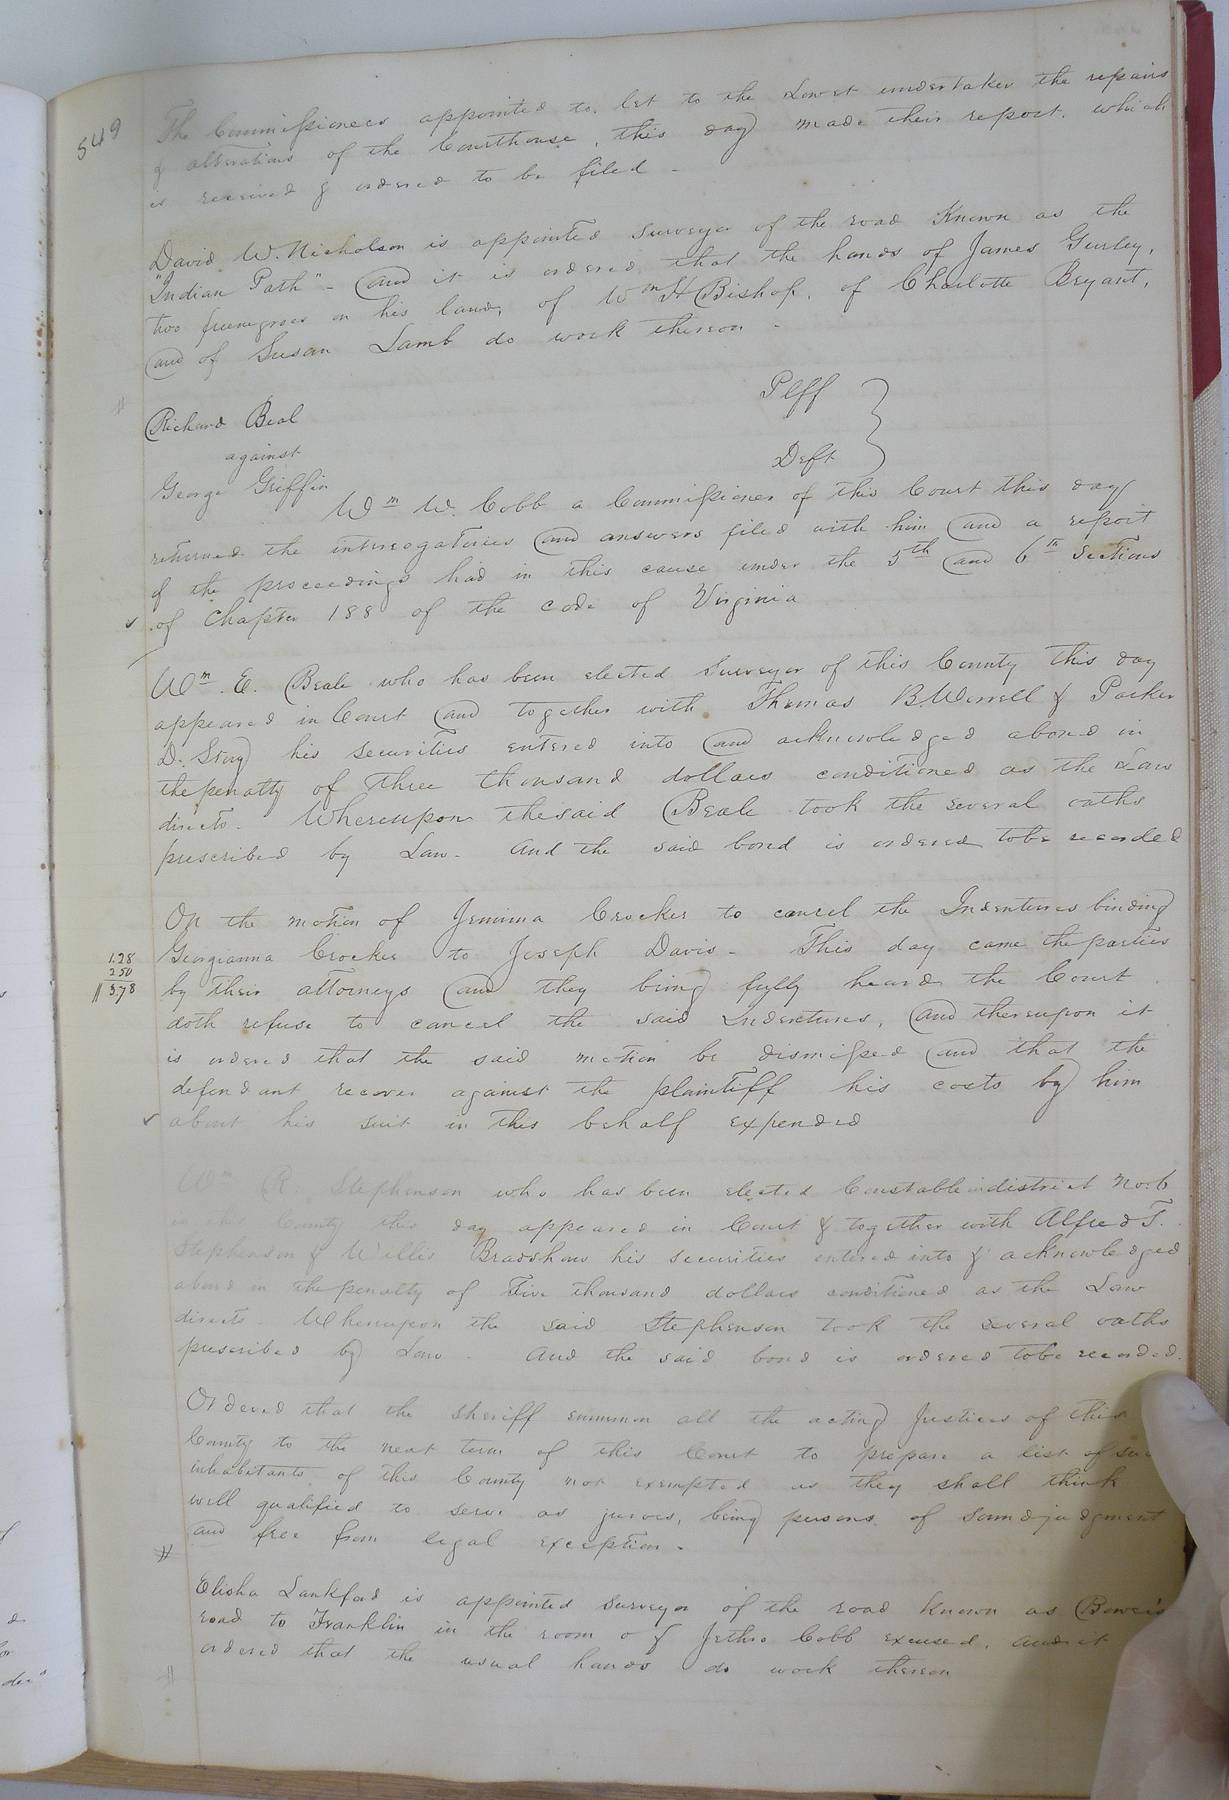 549
The Commissioners appointed to let to the Lowest undertaker the repairs
& alterations of the Courthouse, this day made their report. which
is received & ordered to be filed -
David W. Nicholson is appointed Surveyor of the road Known as the
"Indian Path" - and it is ordered that the hands of James Gurley,
two freenegroes on his land, of Wm H Bishop, of Charlotte Bryant,
and of Susan Lamb do work thereon -
Richard Beal Plff
against
George Griffin Deft
Wm W. Cobb a Commissioner of this Court this day
returned the interrogatories and answers filed with him and a report
of the proceedings had in this cause under the 5th and 6th Sections
of Chapter 188 of the code of Virginia
Wm. E. Beale who has been elected Surveyor of this County this day
appeared in Court and together with Thomas B. Worrell & Parker
D. Story his securities entered into and acknowledged abond in
the penalty of three thousand dollars conditioned as the Law
directs. Whereupon thesaid Beale took the several oaths
prescribed by Law. And the said bond is ordered tobe recorded
On the motion of Jemima Crocker to cancel the Indentures binding
Georgianna Crocker to Joseph Davis - This day came theparties
1.28
2.50
3.78
by their attorneys and they being fully heard the Court
doth refuse to cancel the said Indentures, and thereupon it
is ordered that the said motion be dismissed and that the
defendant recover against the plaintiff his costs by him
about his suit in this behalf expended
Wm R. Stephenson who has been elected Constable in district No. 6
in this County this day appeared in Court & together with Alfred T.
Stephenson & Willis Bradshaw his securities entered into & acknowledged
abond in the penalty of Five thousand dollars conditioned as the Law
directs. Whereupon the said Stephenson took the several oaths
prescribed by Law. And the said bond is ordered tobe recorded.
Ordered that the Sheriff summon all the acting Justices of this
County to the next term of this Court to prepare a list of
inhabitants of this County not exempted as they shall think
well qualified to serve as jurors, being persons of sound judgment
and free from legal exception -
Elisha Lankford is appointed Surveyor of the road known as Bower's
road to Franklin in the room of Jethro Cobb excused, and it
ordered that the usual hands do work thereon